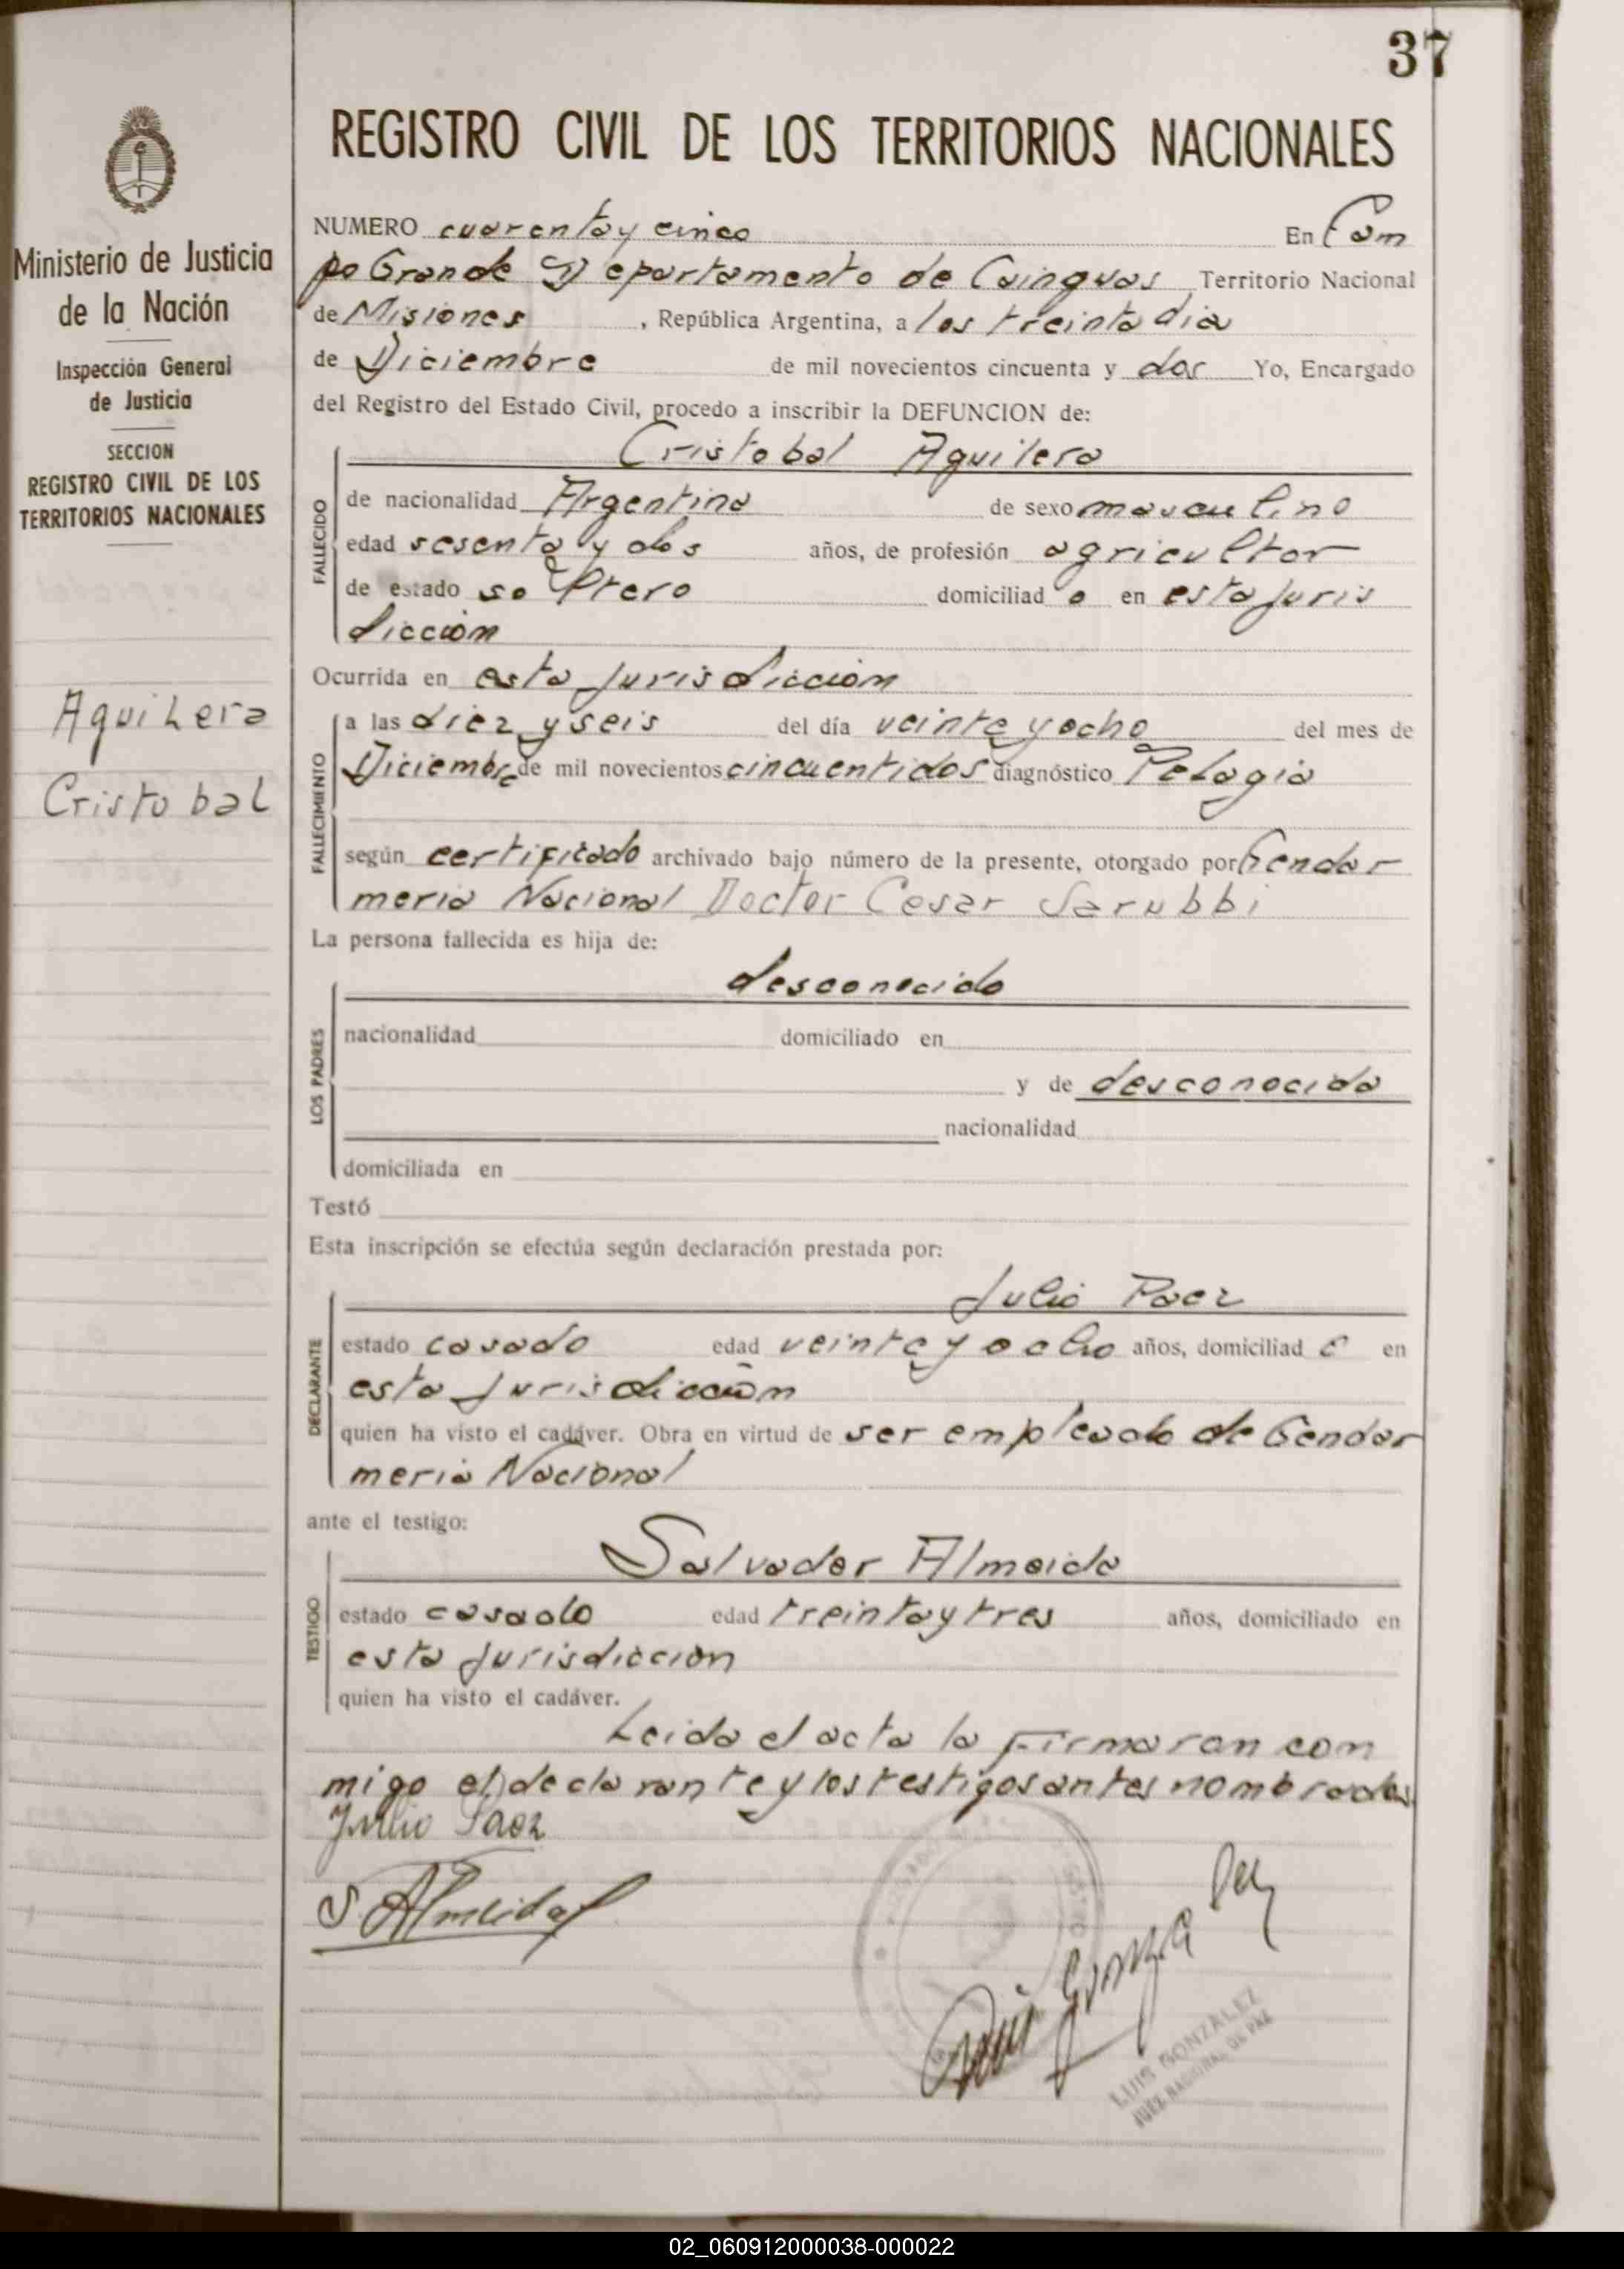 37
REGISTRO CIVIL DE LOS TERRITORIOS NACIONALES
Ministerio de Justicia
de la Nación
Inspección General
de Justicia
SECCION
REGISTRO CIVIL DE LOS
TERRITORIOS NACIONALES
Aguilera
Cristobal
NUMERO cuarenta y cinco En Cam
po Grande Departamento de Cainguas Territorio Nacional
de Misiones, República Argentina, a los treinta dia
de Diciembre de mil novecientos cincuenta y dos Yo, Encargado
del Registro del Estado Civil, procedo a inscribir la DEFUNCION de:
Cristobal Aguilera
FALLECIDO
de nacionalidad Argentina de sexo masculino
edad sesenta y dos años, de profesión agricultor
de estado soltero domiciliad o en esta juris
diccion
Ocurrida en esta jurisdiccion
FALLECIMIENTO
a las diez y seis del día veinte y ocho del mes de
Diciembre de mil novecientos cincuentidos diagnóstico Pelagia
según certificado archivado bajo número de la presente, otorgado por Gendar
meria Nacional Doctor Cesar Sarubbi
La persona fallecida es hija de:
LOS PADRES
desconocido
nacionalidad domiciliado en
y de desconocida
nacionalidad
domiciliada en
Testó
Esta inscripción se efectúa según declaración prestada por:
DECLARANTE
Julio Paez
estado casado edad veinte y ocho años, domiciliad o en
esta jurisdiccion
quien ha visto el cadáver. Obra en virtud de ser empleado de Gendar
meria Nacional
ante el testigo:
TESTIGO
Salvador Almeida
estado casado edad treinta y tres años, domiciliado en
esta jurisdiccion
quien ha visto el cadáver.
Leida el acta la firmaran con
migo el declarante y los testigos antes nombrados.
Julio Paez
S Almeida
LUIS GONZALEZ
JUEZ NACIONAL DE PAZ
02_060912000038-000022